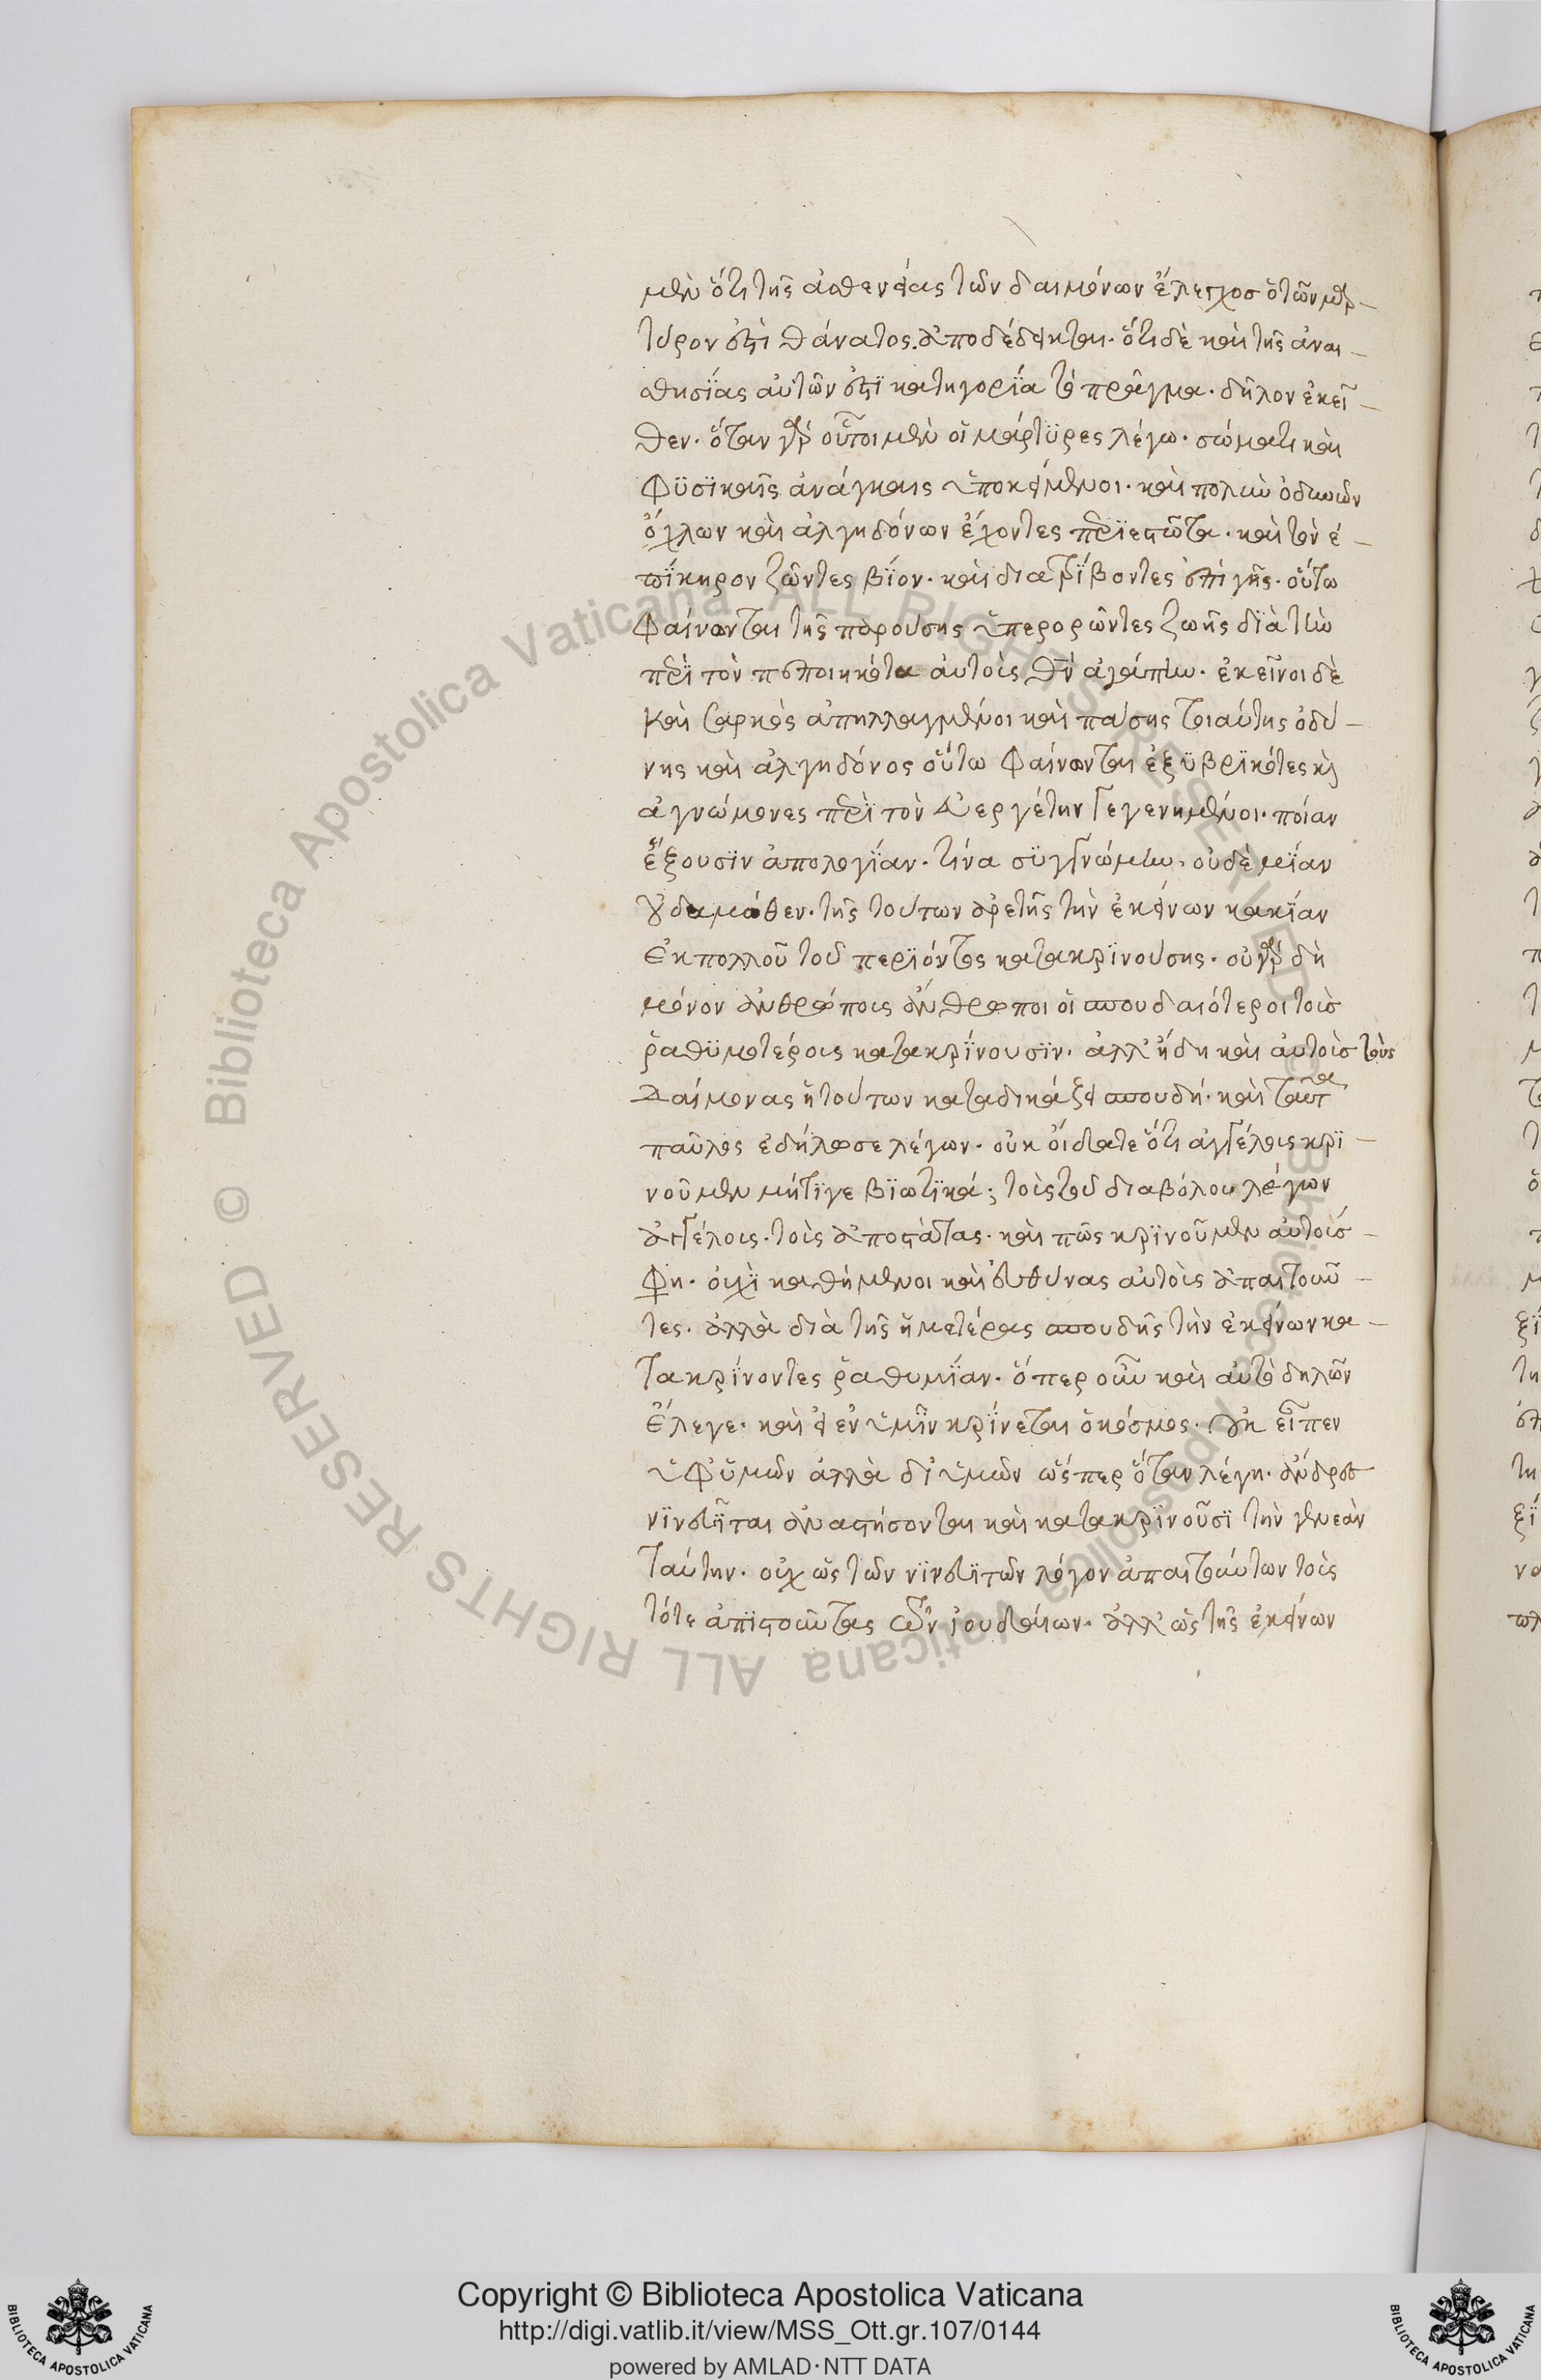 μὲν ὅτι τῆς ἀσθενείας τῶν δαιμόνων ἔλεγχοσ ὁ τῶν μαρ-
τύρον ἐστὶ θάνατος. ἀποδέδεικται. ὅτι δὲ καὶ τῆς ἀναι-
σθησΐας αὐτῶν ἐστϊ κατηγορΐα τὸ πρᾶγμα. δῆλον ἐκεῖ-
θεν. ὅταν γὰρ οὗτοι μὲν οἱ μάρτϋρες λέγω. σώματι καὶ
φϋσϊκαῖς ἀνάγκαις ὑποκείμενοι. καὶ πολὺν ὀδυνῶν
ὄχλων καὶ ἀλγηδόνων ἔχοντες περϊεστῶτα. καὶ τὸν ἐ-
πΐκηρον ζῶντες βΐον. καὶ διατρΐβοντες ἐπὶ γῆς. οὕτω
φαίνονται τῆς παρούσης ὑπερορῶντες ζωῆς διὰ τὴν
περὶ τὸν πεποιηκότα αὐτοὺς θν ἀγάπην. ἐκεῖνοι δὲ
καὶ σαρκὸς ἀπηλλαγμένοι καὶ πάσης τοιαύτης ὀδύ-
νης καὶ ἀλγηδόνος οὕτω φαίνονται ἐξϋβρϊκότες κὶ
ἀγνώμονες περὶ τὸν εὐεργέτην γεγενημένοι. ποίαν
ἕξουσϊν ἀπολογΐαν. τίνα σϋγγνώμην. οὐδὲ μΐαν
οὐδαμόθεν. τῆς τούτων ἀρετῆς τὴν ἐκείνων κακΐαν
ἐκ πολλοῦ τοῦ περϊόντος κατακρϊνούσης. οὐ γὰρ δὴ
μόνον ἀνθρώποις ἄνθρωποι οἱ σπουδαιότεροι τοὺσ
ῥαθϋμοτέροις κατακρΐνουσϊν. ἀλλ' ἤδη καὶ αὐτοὺσ τοὺς
δαίμονας ἡ τούτων καταδικάζει σπουδή. καὶ ταῦτα
παῦλος ἐδήλωσε λέγων. οὐκ οἴδατε ὅτι ἀγγέλοις κρϊ-
νοῦμεν μήτϊγε βϊωτϊκά; τοὺς τοῦ διαβόλου λέγων
ἀγγέλοις. τοὺς ἀποστάτας. καὶ πῶς κρϊνοῦμεν αὐτοὺσ-
φη. οὐχὶ καθήμενοι καὶ εὐθύνας αὐτοὺς ἀπαιτοῦν-
τες. ἀλλὰ διὰ τῆς ἡμετέρας σπουδῆς τὴν ἐκείνων κα-
τακρΐνοντες ῥαθυμΐαν. ὅπερ οὖν καὶ αὐτὸ δηλῶν
ἔλεγε. καὶ εἰ ἐν ὑμῖν κρΐνεται ὁ κόσμος. οὐκ εἶπεν
ὑφ' ὑμῶν ἀλλὰ δι' ὑμῶν ὥσπερ ὅταν λέγη. ἄνδρες
νϊνευῖται ἀναστήσονται καὶ κατακρϊνοῦσϊ τὴν γενεὰν
ταύτην. οὐχ ὡς τῶν νϊνευϊτῶν λόγον ἀπαιτούντων τοὺς
τότε ἀπϊστοῦντας τῶν ἰουδαίων. ἀλλ' ὡς τῆς ἐκείνων
Copyright © Biblioteca Apostolica Vaticana
http://digi.vatlib.it/view/MSS_Ott.gr.107/0144
powered by AMLAD·NTT DATA